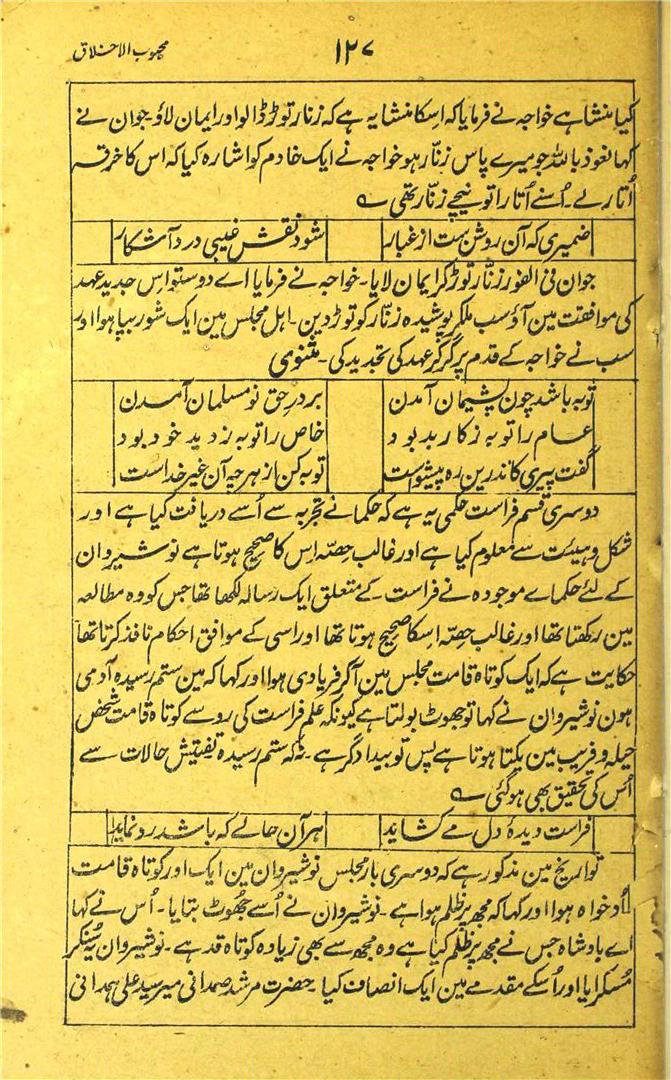 محبوب الاخلاق
۱۲۷
کیا منشا ہے خواجہ نے فرمایا کہ اسکا منشا یہ ہے کہ زنار توڑ ڈالو اور ایمان لاؤ۔ جوان نے
کہا نعوذ باللہ جو میرے پاس زنّار ہو خواجہ نے ایک خادم کو اشارہ کیا کہ اس کا خرقہ
اُتار لے۔ اُسنے اُتارا تو نیچے زنّار تھی ؎
ضمیری کہ آن روشن ست از غبار شود نقش غیبی درد آشکار
جوان فی الفور زنّار توڑ کر ایمان لایا۔ خواجہ نے فرمایا اے دوستو اس جدید عہد
کی موافقت مین آؤ سب ملکر پوشیدہ زنّار کو توڑ دین۔ اہل مجلس مین ایک شور بپا ہوا اور
سب نے خواجہ کے قدم پر گر گر عہد کی تجدید کی۔ مثنوی
توبہ باشد چون پشیمان آمدن بر در حق نو مسلمان آمدن
عام را توبہ ز کار بد بود خاص را توبہ ز دید خود بود
گفت پیری کاندرین رہ پیشواست توبہ کن از ہرچہ آن غیر خداست
دوسری قسم فراست حکمی یہ ہے کہ حکما نے تجربہ سے اُسے دریافت کیا ہے اور
شکل و ہیئت سے معلوم کیا ہے اور غالب حصّہ اس کا صحیح ہوتا ہے نوشیروان
کے لئے حکماے موجودہ نے فراست کے متعلق ایک رسالہ لکھا تھا جس کو وہ مطالعہ
مین رکھتا تھا اور غالب حصّہ اسکا صحیح ہوتا تھا اور اسی کے موافق احکام نافذ کرتا تھا
حکایت ہے کہ ایک کوتاہ قامت مجلس مین آکر فریادی ہوا اور کہا کہ مین ستم رسیدہ آدمی
ہون نوشیروان نے کہا تو جھوٹ بولتا ہے کیونکہ علم فراست کی رو سے کوتاہ قامت شخص
حیلہ و فریب مین یکتا ہوتا ہے پس تو بیدادگر ہے۔ نہ کہ ستم رسیدہ تفتیش حالات سے
اُس کی تحقیق بھی ہو گئی ؎
فراست دیدۂ دل مے کشاید ہر آن حالے کہ باشد رو نماید
تواریخ مین مذکور ہے کہ دوسری بار مجلس نوشیروان مین ایک اور کوتاہ قامت
دادخواہ ہوا اور کہا کہ مجھ پر ظلم ہوا ہے۔ نوشیروان نے اُسے جھوٹ بتایا۔ اُس نے کہا
اے بادشاہ جس نے مجھ پر ظلم کیا ہے وہ مجھ سے بھی زیادہ کوتاہ قد ہے۔ نوشیروان یہ سنکر
مُسکرایا اور اُسکے مقدمے مین ایک انصاف کیا۔ حضرت مرشد صمدانی میر سید علی ہمدانی